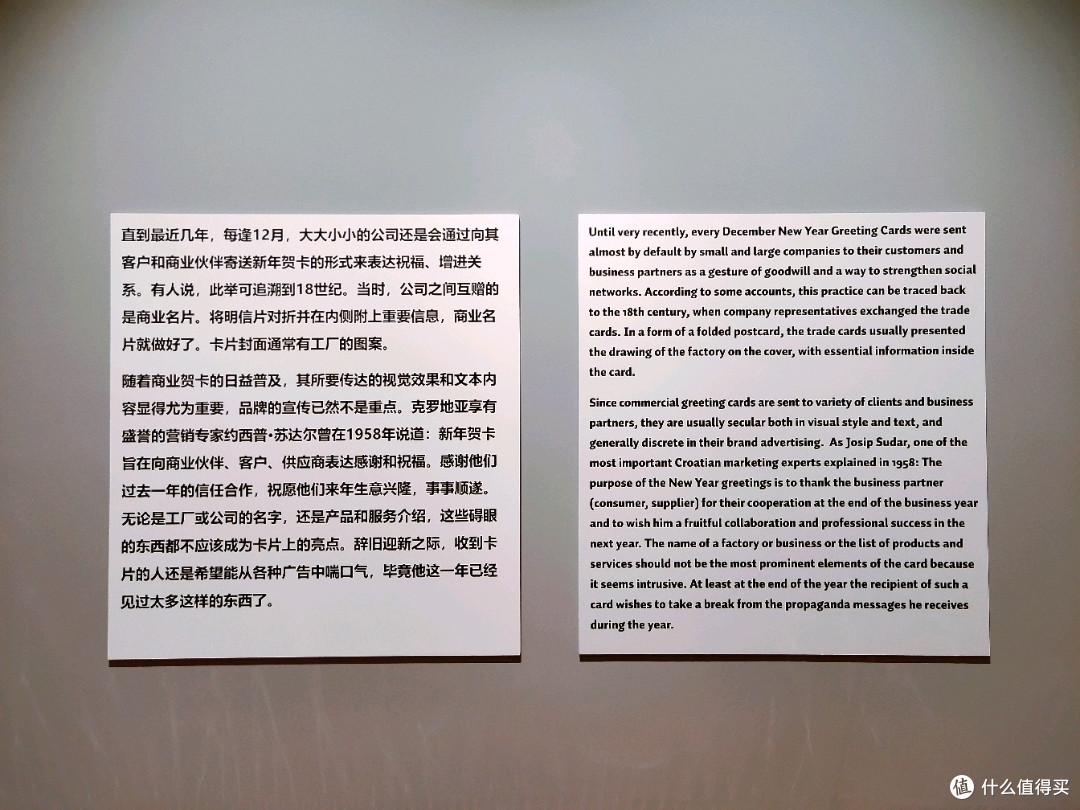 直到最近几年，每逢12月，大大小小的公司还是会通过向其
客户和商业伙伴寄送新年贺卡的形式来表达祝福、增进关
系。有人说，此举可追溯到18世纪。当时，公司之间互赠的
是商业名片。将明信片对折并在内侧附上重要信息，商业名
片就做好了。卡片封面通常有工厂的图案。
随着商业贺卡的日益普及，其所要传达的视觉效果和文本内
容显得尤为重要，品牌的宣传已然不是重点。克罗地亚享有
盛誉的营销专家约西普•苏达尔曾在1958年说道：新年贺卡
旨在向商业伙伴、客户、供应商表达感谢和祝福。感谢他们
过去一年的信任合作，祝愿他们来年生意兴隆，事事顺遂。
无论是工厂或公司的名字，还是产品和服务介绍，这些碍眼
的东西都不应该成为卡片上的亮点。辞旧迎新之际，收到卡
片的人还是希望能从各种广告中喘口气，毕竟他这一年已经
见过太多这样的东西了。
Until very recently, every December New Year Greeting Cards were sent
almost by default by small and large companies to their customers and
business partners as a gesture of goodwill and a way to strengthen social
networks. According to some accounts, this practice can be traced back
to the 18th century, when company representatives exchanged the trade
cards. In a form of a folded postcard, the trade cards usually presented
the drawing of the factory on the cover, with essential information inside
the card.
Since commercial greeting cards are sent to variety of clients and business
partners, they are usually secular both in visual style and text, and
generally discrete in their brand advertising. As Josip Sudar, one of the
most important Croatian marketing experts explained in 1958: The
purpose of the New Year greetings is to thank the business partner
(consumer, supplier) for their cooperation at the end of the business year
and to wish him a fruitful collaboration and professional success in the
next year. The name of a factory or business or the list of products and
services should not be the most prominent elements of the card because
it seems intrusive. At least at the end of the year the recipient of such a
card wishes to take a break from the propaganda messages he receives
during the year.
值 什么值得买